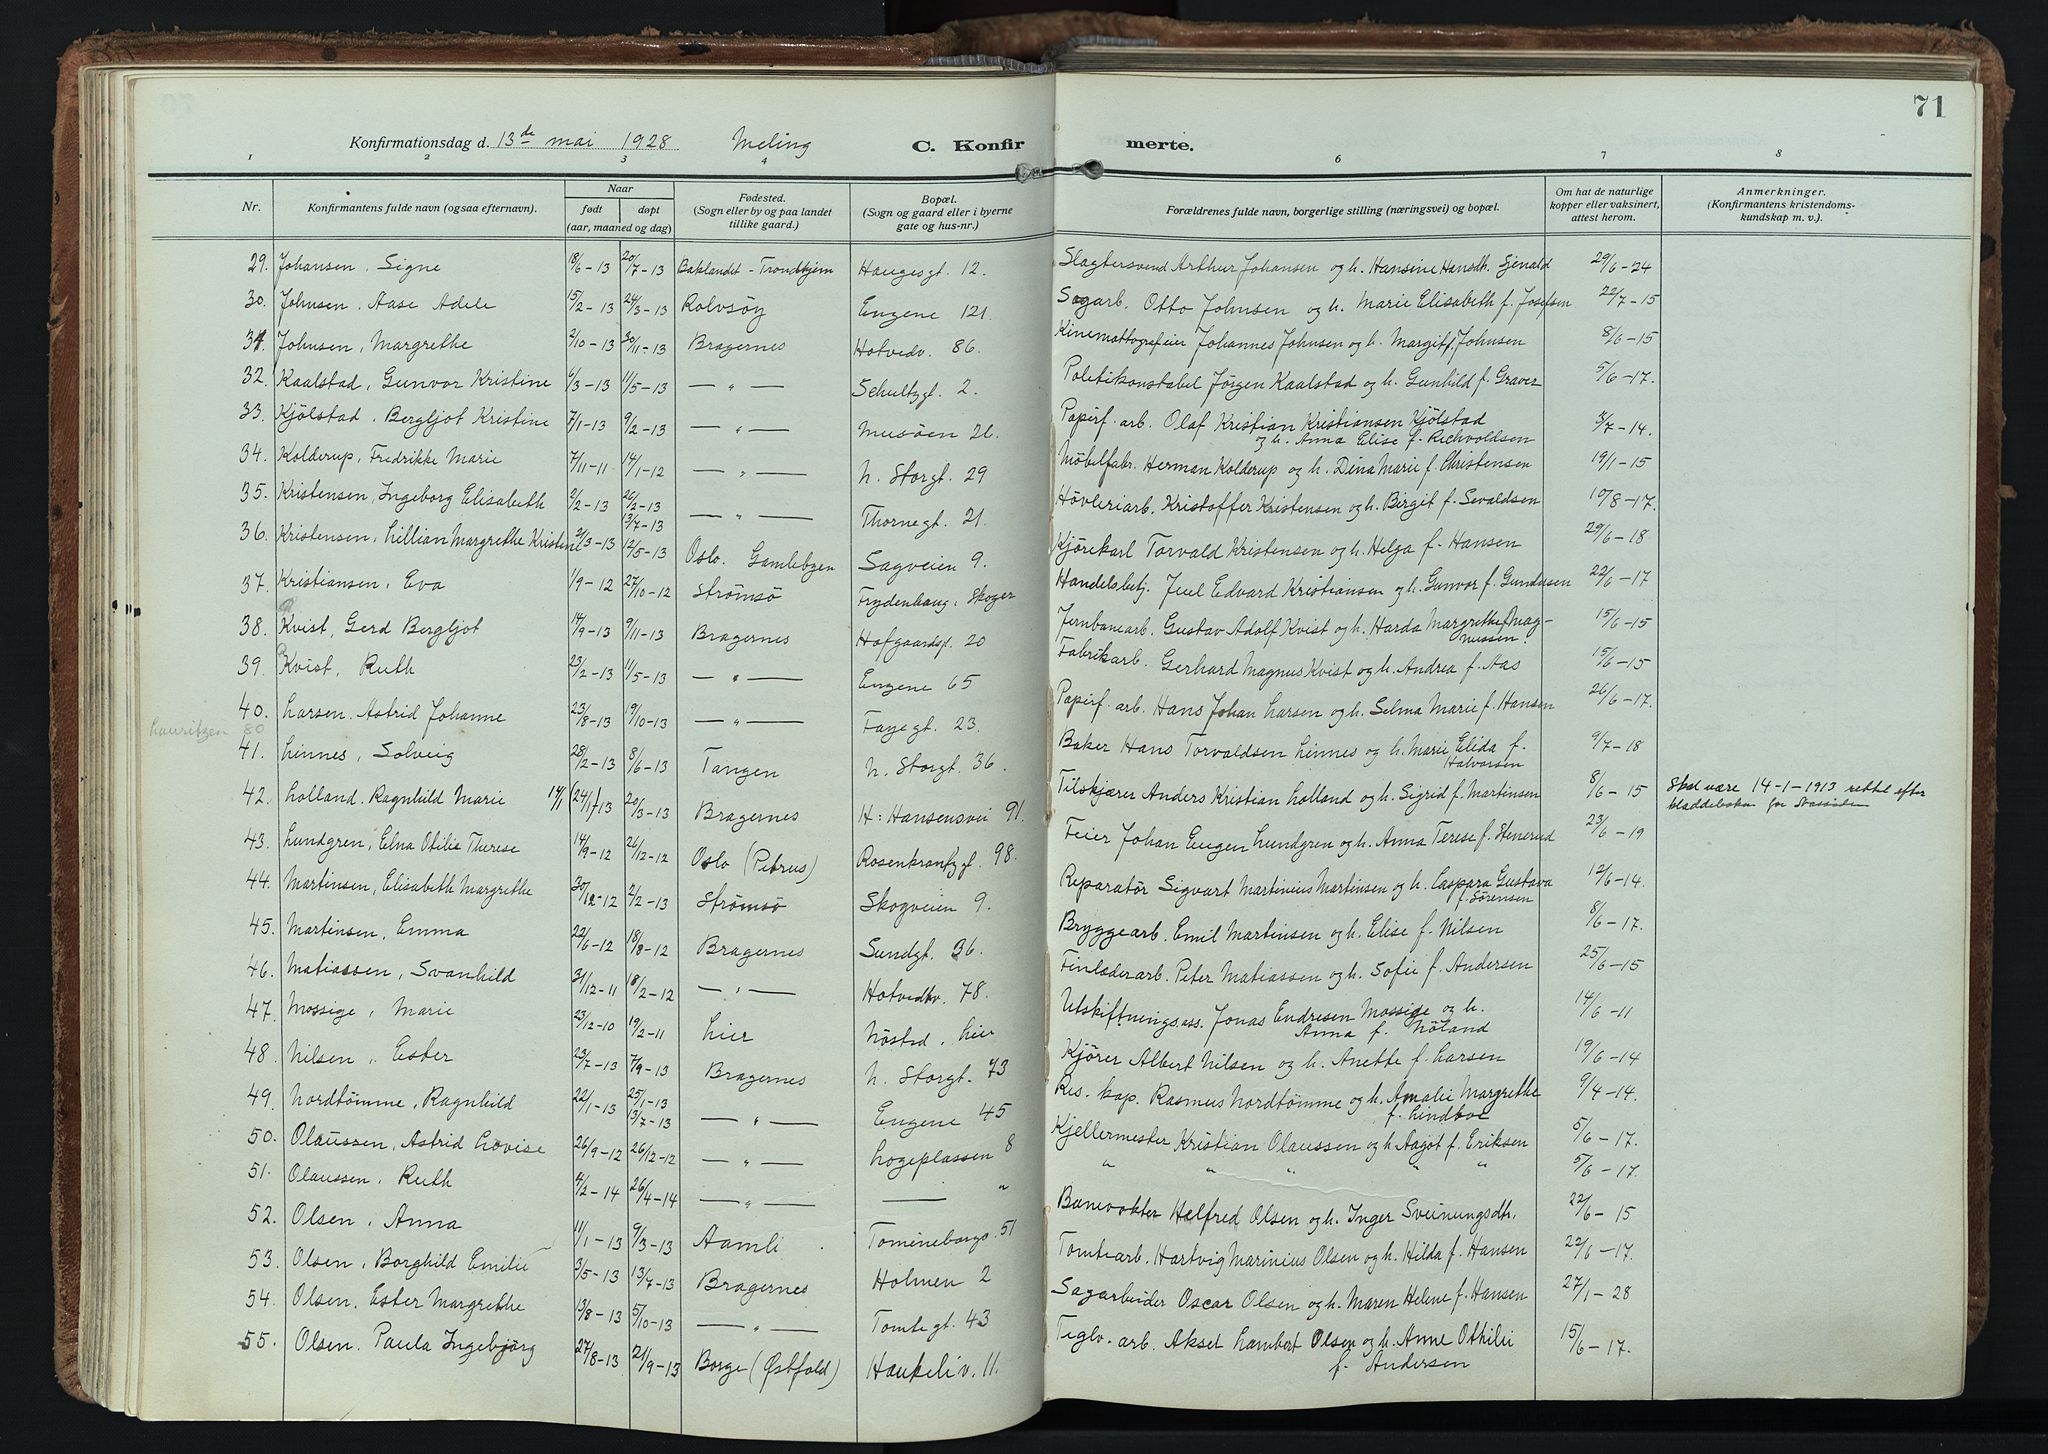 71
Konfirmationsdag d. 13de mai 1928 Meling C. Konfirmerte.
1 2 3 4 6 7 8
Nr. Konfirmantens fulde navn (ogsaa efternavn). Naar født døpt (aar, maaned og dag) Fødested. (Sogn eller by og paa landet tillike gaard.) Bopæl. (Sogn og gaard eller i byerne gate og hus-nr.) Forældrenes fulde navn, borgerlige stilling (næringsvei) og bopæl. Om hat de naturlige kopper eller vaksinert, attest herom. Anmerkninger. (Konfirmantens kristendomskundskap m. v.)
29. Johansen, Signe 18/6-13 20/7-13 Baklandet - Trondhjem Haugesgt. 12. Slagtersvend Arthur Johansen og h. Hansine Hansdh. Sjenald 29/6-24
30. Johnsen, Aase Adele 15/2-13 24/3-13 Rolvsøy Engene 121. Sagarb. Otto Johnsen og h. Marie Elisabeth f. Josefsen 22/7-15
31. Johnsen, Margrethe 2/10-13 30/11-13 Bragernes Hotvedv. 86. Kinemattografeier Johannes Johnsen og h. Margit f. Johnsen 8/6-15
32. Kaalstad, Gunvor Kristine 6/3-13 11/5-13 — " — Schultzgt. 2. Politikonstabel Jørgen Kaalstad og h. Gunhild f. Graver 5/6-17.
33. Kjølstad, Bergljot Kristine 7/1-13 9/2-13 — " — Musøen 21. Papirf. arb. Olaf Kristian Kristiansen Kjølstad og h. Anna Elise f. Richvoldsen /7-14.
34. Kolderup, Fredrikke Marie 7/11-11 14/1-12 — " — N. Storgt. 29 Møbelfabr. Herman Kolderup og h. Dina Marie f. Christensen 19/1-15
35. Kristensen, Ingeborg Elisabeth 2/2-13 26/2-13 13/7-13 — " — Thornegt. 21. Høvleriarb. Kristoffer Kristensen og h. Birgit f. Sevaldsen 10/8-17.
36. Kristensen, Lillian Margrethe Kristine 2/3-13 12/5-13 Oslo. Gamlebyen Sagveien 9. Kjørekarl Torvald Kristensen og h. Helga f. Hansen 29/6-18
37. Kristiansen, Eva 1/9-12 27/10-12 Strømsø Frydenhaug, Skoger Handelsbetj. Juel Edvard Kristiansen og h. Gunvor f. Gundersen 22/6-17
38. Kvist, Gerd Bergljot 14/9-13 9/11-13 Bragernes Hofgaardsgt. 20 Jernbanearb. Gustav Adolf Kvist og h. Harda Margrethe f. Magnussen. 15/6-15
39. Kvist, Ruth 23/2-13 11/5-13 — " — Engene 65 Fabrikarb. Gerhard Magnus Kvist og h. Andrea f. Aas 15/6-15
40. Larsen, Astrid Johanne 23/8-13 19/10-13 — " — Fayegt. 23. Papirf. arb. Hans Johan Larsen og h. Selma Marie f. Hansen 26/6-17.
Lauritzen 80
41. Linnes, Solveig 28/2-13 8/6-13 Tangen N. Storgt. 36. Baker Hans Torvaldsen Linnes og h. Marie Elida f. Halvorsen 9/7-18
42. Lolland, Ragnhild Marie 14/1 24/1-13 20/3-13 Bragernes H: Hansensvei 91. Tilskjærer Anders Kristian Lolland og h. Sigrid f. Martinsen 8/6-15 Skal være 14-1-1913 rettet efter kladdeboken for
43. Lundgren, Elna Otilie Therese 14/9-12 26/12-12 Oslo (Petrus) Rosenkrantzgt. 98. Feier Johan Eugen Lundgren og h. Anna Terese f. Stenerud 23/6-19
44. Martinsen, Elisabeth Margrethe 30/12-12 2/2-13 Strømsø Skogveien 9. Reparatør Sigvart Martinius Martinsen og h. Caspara Gustava f. Sørensen 12/6-14.
45. Martinsen, Emma 22/6-12 18/8-12 Bragernes Sundgt. 36. Bryggearb. Emil Martinsen og h. Elise f. Nilsen 8/6-17.
46. Matiassen, Svanhild 31/12-11 18/2-12 — " — Hotvedtv. 78. Finladerarb. Peter Matiassen og h. Sofie f. Andersen 25/6-15
47. Mossige, Marie 23/12-10 19/2-11 Lier Nøsted, Lier Utskiftningsass. Jonas Endresen Mossige og h. Anna f. Nøland 14/6-11
48. Nilsen, Ester 23/7-13 7/9-13 Bragernes N. Storgt. 73 Kjører Albert Nilsen og h. Anette f. Larsen 19/6-14
49. Nordtømme, Ragnhild 22/1-13 25/1-13 13/7-13 — " — Engene 45 Res. kap. Rasmus Nordtømme og h. Amalie Margrethe f. Lindboe 9/4-14.
50. Olaussen, Astrid Lovise 26/9-12 26/12-12 — " — Logeplassen 8 Kjellermester Kristian Olaussen og h. Aagot f. Eriksen 5/6-17.
51. Olaussen, Ruth 4/2-14 26/4-14 — " — — " " " " " " 5/6-17.
52. Olsen, Anna 11/1-13 9/3-13 Aamli Tomineborgs. 51 Banevokter Helfred Olsen og h. Inger Sveinungsdh. 22/6-15
53. Olsen, Borghild Emilie 3/5-13 13/7-13 Bragernes Holmen 2 Tomtearb. Hartvig Marinius Olsen og h. Hilda f. Hansen 22/6-17.
54. Olsen, Ester Margrethe 13/8-13 5/10-13 — " — Tomtegt. 43 Sagarbeider Oscar Olsen og h. Maren Helene f. Hansen 27/1-28
55. Olsen, Paula Ingebjørg 27/8-13 21/9-13 Borge (Østfold) Haukeliv. 11. Teglv. arb. Aksel Lambert Olsen og h. Anne Othilie f. Andersen 15/6-17.